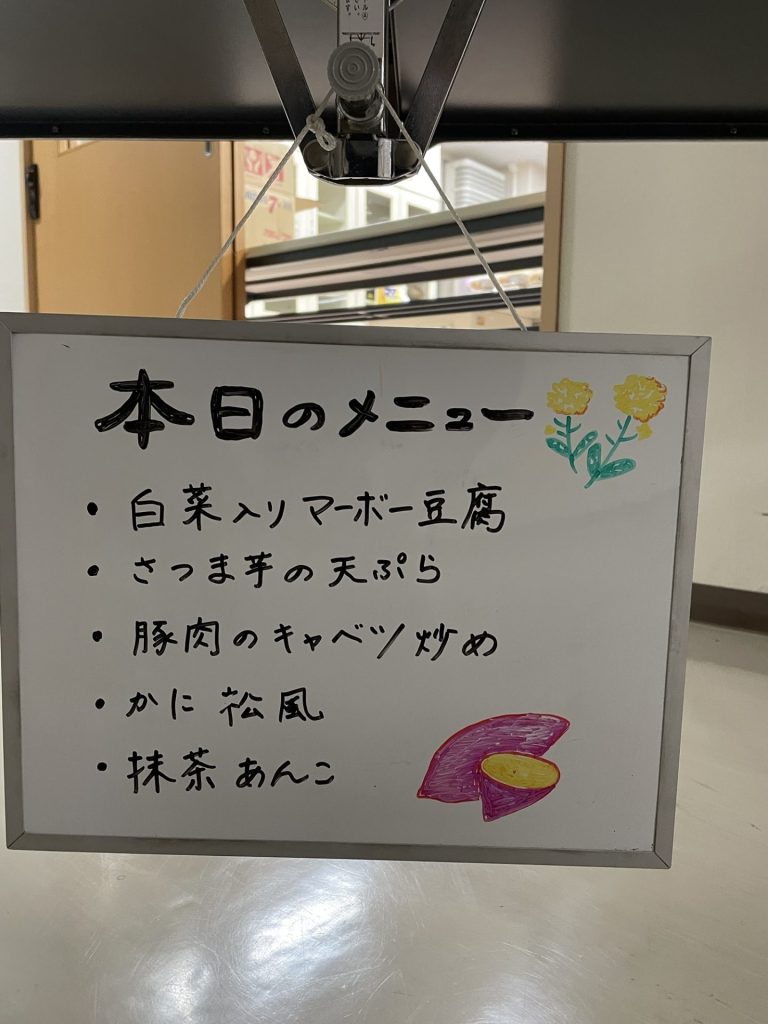 本日のメニュー
・白菜入りマーボー豆腐
・さつま芋の天ぷら
・豚肉のキャベツ炒め
・かに松風
・抹茶あんこ